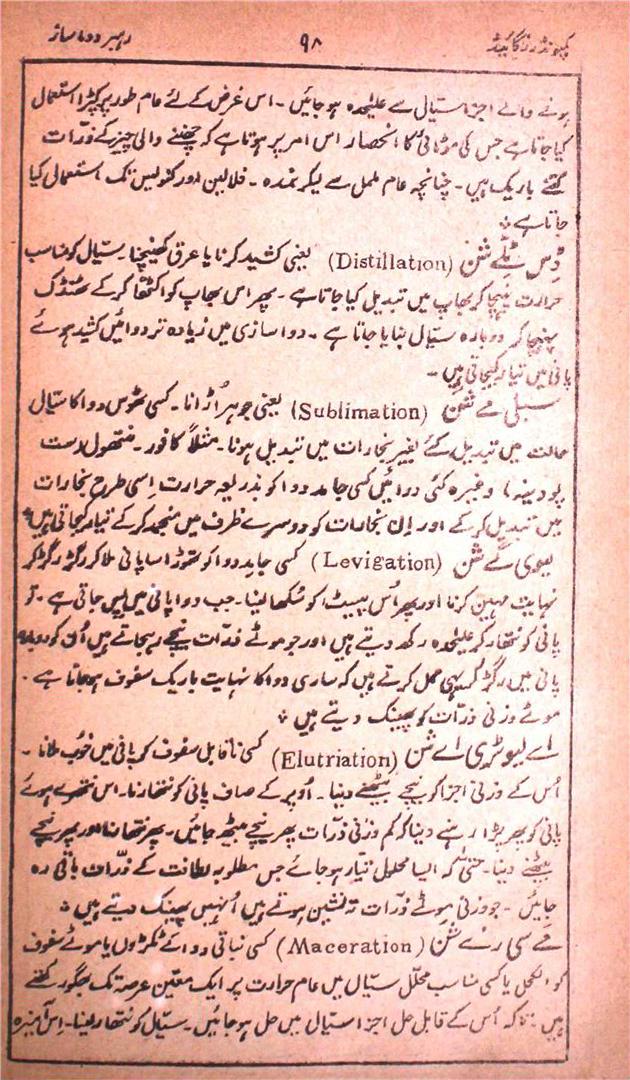 کمپونڈرز گائیڈ ۹۸ رہبر دوا ساز
ہونے والے اجزا ستیال سے علیٰحدہ ہو جائیں ۔ اس غرض کے لئے عام طور پر کپڑا استعمال
کیا جاتا ہے جس کی موٹائی کا انحصار اس امر پر ہوتا ہے کہ چھننے والی چیز کے ذرّات
کتنے باریک ہیں ۔ چنانچہ عام ململ سے لیکر نمدہ ۔ فلالین اور کنولیس تک استعمال کیا
جاتا ہے ؞
ڈِس ٹِلے شن (Distillation) یعنی کشید کرنا یا عرق کھینچنا ۔ ستیال کو مناسب
حرارت پہنچا کر بھاپ میں تبدیل کیا جاتا ہے ۔ پھر اس بھاپ کو اکٹھا کر کے ٹھنڈک
پہنچا کر دوبارہ ستیال بنایا جاتا ہے ۔ دوا سازی میں زیادہ تر دوائیں کشید ہوئے
پانی میں تیار کیجاتی ہیں ۔
سبلی مے شن (Sublimation) یعنی جوہر اُڑانا ۔ کسی ٹھوس دوا کا ستیال
حالت میں تبدیل کئے بغیر بخارات میں تبدیل ہونا ۔ مثلاً کافور ۔ منتھول ست
پودینہ وغیرہ کئی دوائیں کسی جامد دوا کو بذریعہ حرارت اِسی طرح بخارات
میں تبدیل کر کے اور اِن بخارات کو دوسرے ظرف میں منجمد کر کے تیار کیجاتی ہیں ؞
لیوی گے شن (Levigation) کسی جامد دوا کو تھوڑا سا پانی ملا کر رگڑ رگڑ کر
نہایت مہین کرنا اور پھر اُس پیسٹ کو سُکھا لینا ۔ جب دوا پانی میں پس جاتی ہے ۔ تو
پانی کو نتھار کر علیٰحدہ رکھ دیتے ہیں اور جو موٹے ذرّات نیچے رہجاتے ہیں اُن کو دوبارہ
پانی میں رگڑ کر یہی عمل کرتے ہیں کہ ساری دوا کا نہایت باریک سفوف ہو جاتا ہے ۔
موٹے وزنی ذرّات کو پھینک دیتے ہیں ؞
اے لیوٹری اے شن (Elutriation) کسی ناقابل سفوف کو پانی میں خوب ملانا ۔
اُس کے وزنی اجزا کو نیچے بیٹھنے دینا ۔ اُوپر کے صاف پانی کو نتھارنا ۔ اس نتھرے ہوئے
پانی کو پھر پڑا رہنے دینا کہ کم وزنی ذرّات پھر نیچے بیٹھ جائیں ۔ پھر نتھارنا اور پھر نیچے
بیٹھنے دینا ۔ حتیٰ کہ ایسا محلول تیار ہو جائے جس میں مطلوبہ لطافت کے ذرّات باقی رہ
جائیں ۔ جو وزنی موٹے ذرّات تہ نشین ہوتے ہیں اُنہیں پھینک دیتے ہیں ؞
مے سی رے شن (Maceration) کسی نباتی دوا کے ٹکڑوں یا موٹے سفوف
کو الکحل یا کسی مناسب محلّل ستیال میں عام حرارت پر ایک معیّن عرصہ تک بھگو رکھتے
ہیں ۔ تاکہ اُس کے قابل حل اجزا ستیال میں حل ہو جائیں ۔ ستیال کو نتھار لینا ۔ اِس آمیزہ